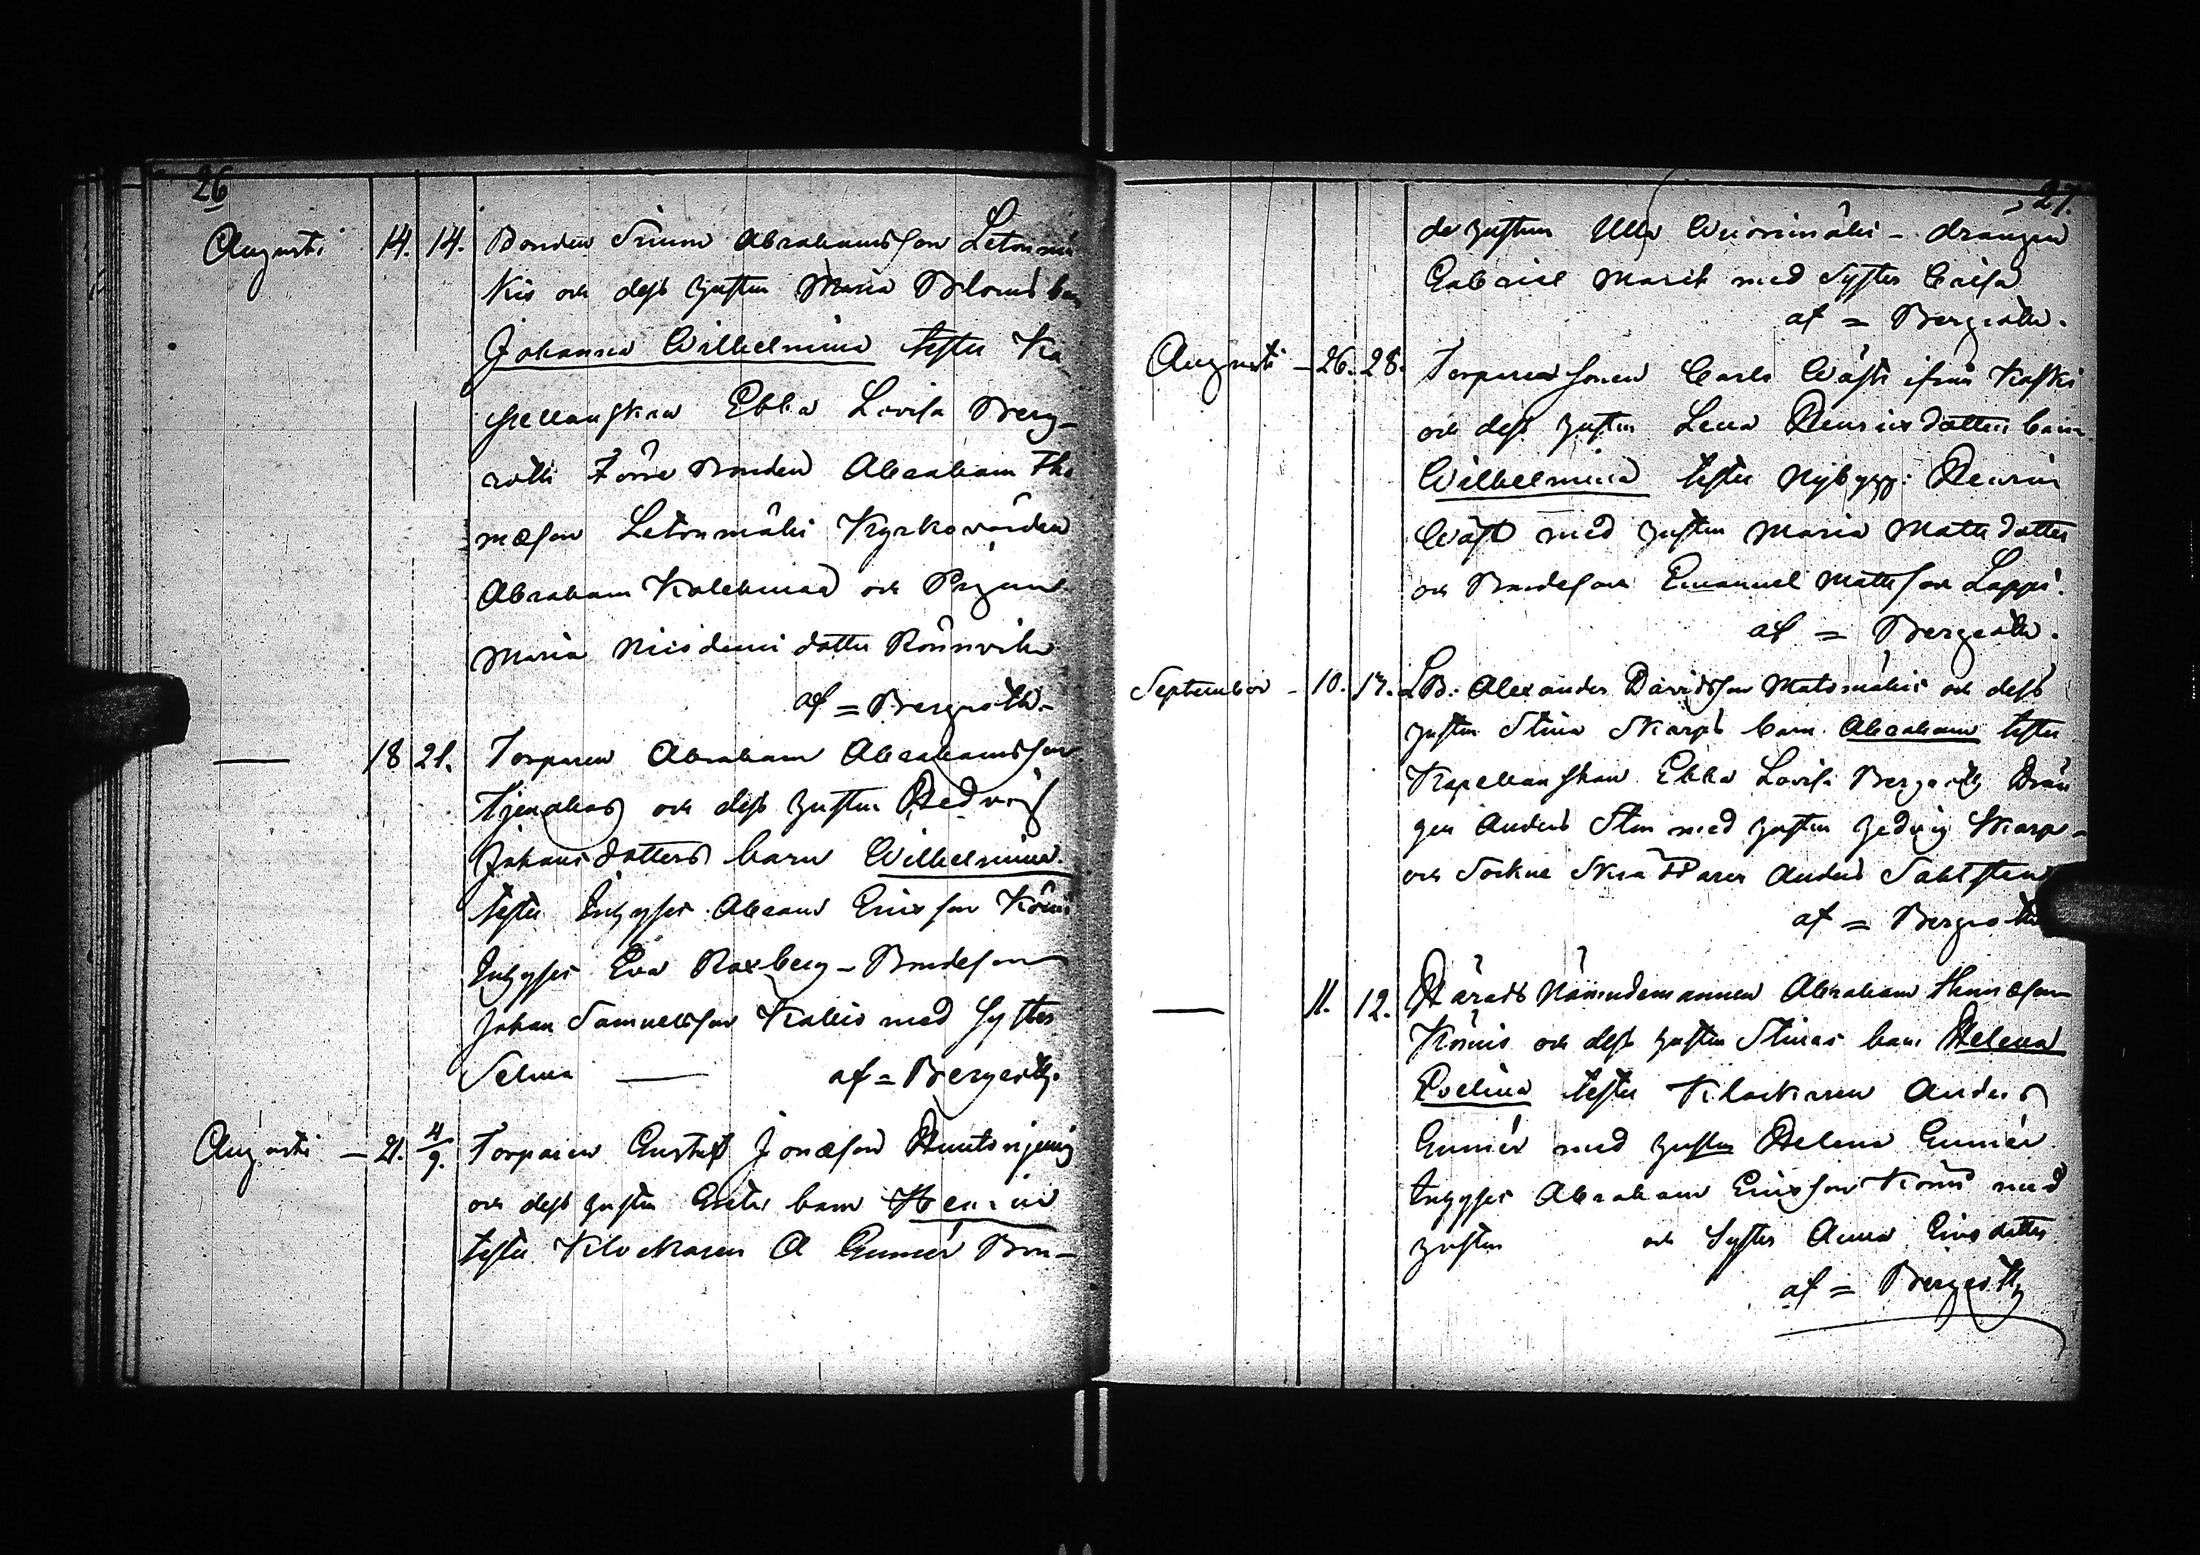 26
Augusti 14. 14. Bonden Simon Abrahamsson Letonmä
kis och dess hustru Maria Bloms barn
Johanna Wilhelmina testes Ka-
pellanskan Ebba Lovisa Berg-
roth Förre Bonden Abraham Tho
mæson Letonmäki Kyrkovärden
Abraham Kalehmaa och Pigan
Maria Nicodemi dotter Rönnvik
af = Bergroth.
— 18 21. Torparen Abraham Abrahamsson
och dess hustru Hedvig
Johansdotters barn Wilhelmina
testes Inhyses Abram Ericsson Köni
Inhyses Eva Roxberg - Bondeson
Johan Samuelsson Kallio med Syster
Selma — af = Bergroth.
Augusti — 21. 4/9. Torparen Gustaf Jonæson
och dess hustru Greta barn Henric
testes Klockaren A Gunnér Bon-
27.
de hustrun Ulla Wuorimäki - drängen
Gabriel Marck med Syster Caisa
af = Bergroth.
Augusti - 26. 28. Torpareson Carl Wäst ifrån Kaski
och dess hustru Lena Henricsdotters barn
Wilhelmina testes Nybygg: Henric
Wäst med hustru Maria Mattsdotter
och Bondeson Emanuel Mattsson Lappi.
af = Bergroth.
September - 10. 17. LB: Alexander Davidsson Matomäkis och dess
hustru Stina Skarps barn Abraham testes
Kapellanskan Ebba Lovisa Bergroth Drän
gen Anders Sten med hustru Hedvig Skarp-
och Sockne Skräddaren Anders Sahlsten
af = Bergroth
— 11. 12. Härads Nämndemannen Abraham Thomæson
Könnis och dess hustru Stinas barn Helena
Evelina testes Klockaren Anders
Gunnér med hustru Helena Gunnér
Inhyses Abraham Ericsson Köni med
hustru och Syster Anna Ericsdotter
af = Bergroth